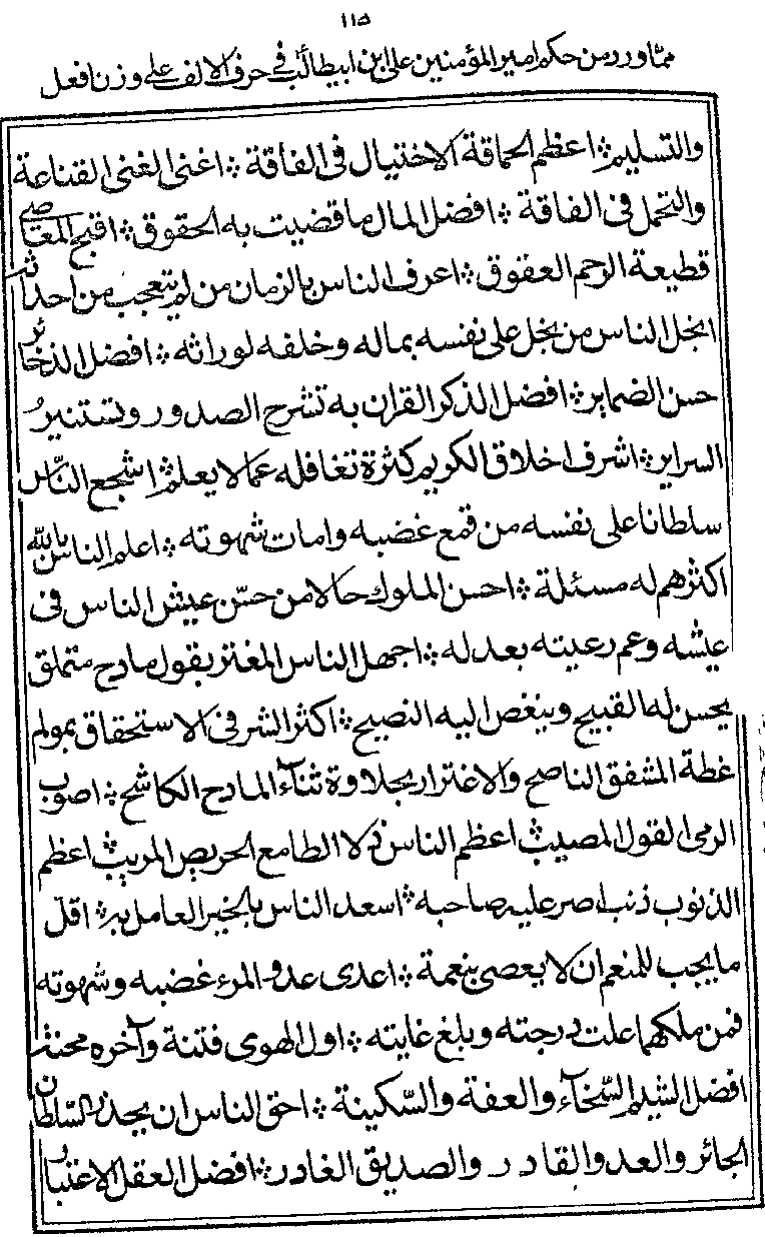 ١١٥
مما ورد من حكم امير المؤمنين على ابن ابيطالب في حرف الالف على وزن افعل
والتسليم ؞ اعظم الحماقة الاختيال فى الفاقة ؞ اغنى الغنى القناعة
والتحمل فى الفاقة ؞ افضل المال ما قضيت به الحقوق ؞ اقبح المعاصى
قطيعة الرحم العقوق ؞ اعرف الناس بالزمان من لم يتعجب من احداثه
ابخل الناس من بخل على نفسه بماله وخلفه لوراثه ؞ افضل الذخائر
حسن الضماير ؞ افضل الذكر القران به تشرح الصدور وتستنير
السراير ؞ اشرف اخلاق الكريم كثرة تغافله عما لا يعلم ؞ اشجع الناس
سلطانا على نفسه من قمع غضبه وامات شهوته ؞ اعلم الناس بالله
اكثرهم له مسئلة ؞ احسن الملوك حالا من حسن عيش الناس فى
عيشه وعم رعيته بعدله ؞ اجهل الناس المغتر بقول مادح متملق
يحسن له القبيح ويبغض اليه النصيح ؞ اكثر الشر فى الاستحقاق بمولم
غطة المشفق الناصح والاغترار بحلاوة ثناء المادح الكاشح ؞ اصوب
الرمى القول المصيب ؞ اعظم الناس ذلا الطامع الحريص المريب ؞ اعظم
الذنوب ذنب اصر عليه صاحبه ؞ اسعد الناس بالخير العامل به ؞ اقل
ما يجب للمنعم ان لا يعصى بنعمة ؞ اعدى عدو المرء غضبه وشهوته
فمن ملكهما علت درجته وبلغ غايته ؞ اول الهوى فتنة وآخره محنة ؞
افضل الشيم السخاء والعفة والسكينة ؞ احق الناس ان يحذر السلطان
الجائر والعدو القادر والصديق الغادر ؞ افضل العقل الاعتبار